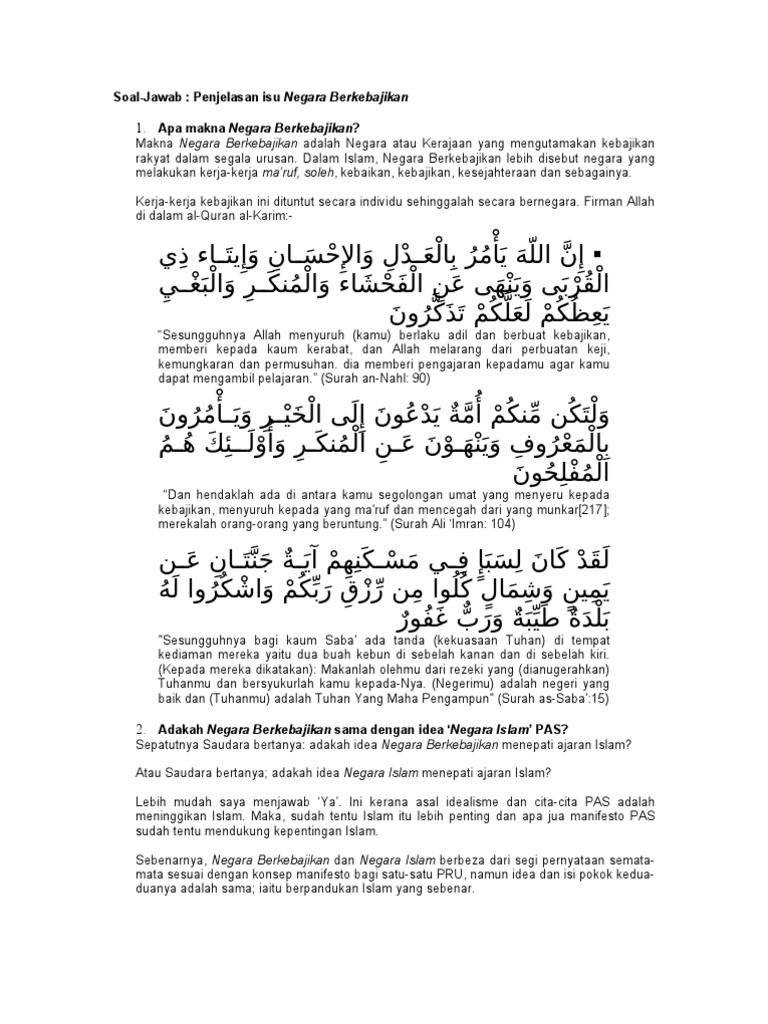 Soal-Jawab : Penjelasan isu Negara Berkebajikan
1. Apa makna Negara Berkebajikan?
Makna Negara Berkebajikan adalah Negara atau Kerajaan yang mengutamakan kebajikan
rakyat dalam segala urusan. Dalam Islam, Negara Berkebajikan lebih disebut negara yang
melakukan kerja-kerja ma’ruf, soleh, kebaikan, kebajikan, kesejahteraan dan sebagainya.
Kerja-kerja kebajikan ini dituntut secara individu sehinggalah secara bernegara. Firman Allah
di dalam al-Quran al-Karim:-
▪ إِنَّ اللّهَ يَأْمُرُ بِالْعَـدْلِ وَالإِحْسَـانِ وَإِيتَـاء ذِي
الْقُرْبَى وَيَنْهَى عَنِ الْفَحْشَاء وَالْمُنكَـرِ وَالْبَغْـيِ
يَعِظُكُمْ لَعَلَّكُمْ تَذَكَّرُونَ
“Sesungguhnya Allah menyuruh (kamu) berlaku adil dan berbuat kebajikan,
memberi kepada kaum kerabat, dan Allah melarang dari perbuatan keji,
kemungkaran dan permusuhan. dia memberi pengajaran kepadamu agar kamu
dapat mengambil pelajaran.” (Surah an-Nahl: 90)
وَلْتَكُن مِّنكُمْ أُمَّةٌ يَدْعُونَ إِلَى الْخَيْـرِ وَيَـأْمُرُونَ
بِالْمَعْرُوفِ وَيَنْهَـوْنَ عَـنِ الْمُنكَـرِ وَأُوْلَــئِكَ هُـمُ
الْمُفْلِحُونَ
“Dan hendaklah ada di antara kamu segolongan umat yang menyeru kepada
kebajikan, menyuruh kepada yang ma’ruf dan mencegah dari yang munkar[217];
merekalah orang-orang yang beruntung.” (Surah Ali ‘Imran: 104)
لَقَدْ كَانَ لِسَبَإٍ فِـي مَسْـكَنِهِمْ آيَـةٌ جَنَّتَـانِ عَـن
يَمِينٍ وَشِمَالٍ كُلُوا مِن رِّزْقِ رَبِّكُمْ وَاشْكُرُوا لَهُ
بَلْدَةٌ طَيِّبَةٌ وَرَبٌّ غَفُورٌ
"Sesungguhnya bagi kaum Saba’ ada tanda (kekuasaan Tuhan) di tempat
kediaman mereka yaitu dua buah kebun di sebelah kanan dan di sebelah kiri.
(Kepada mereka dikatakan): Makanlah olehmu dari rezeki yang (dianugerahkan)
Tuhanmu dan bersyukurlah kamu kepada-Nya. (Negerimu) adalah negeri yang
baik dan (Tuhanmu) adalah Tuhan Yang Maha Pengampun" (Surah as-Saba’:15)
2. Adakah Negara Berkebajikan sama dengan idea ‘Negara Islam’ PAS?
Sepatutnya Saudara bertanya: adakah idea Negara Berkebajikan menepati ajaran Islam?
Atau Saudara bertanya; adakah idea Negara Islam menepati ajaran Islam?
Lebih mudah saya menjawab ‘Ya’. Ini kerana asal idealisme dan cita-cita PAS adalah
meninggikan Islam. Maka, sudah tentu Islam itu lebih penting dan apa jua manifesto PAS
sudah tentu mendukung kepentingan Islam.
Sebenarnya, Negara Berkebajikan dan Negara Islam berbeza dari segi pernyataan semata-
mata sesuai dengan konsep manifesto bagi satu-satu PRU, namun idea dan isi pokok kedua-
duanya adalah sama; iaitu berpandukan Islam yang sebenar.